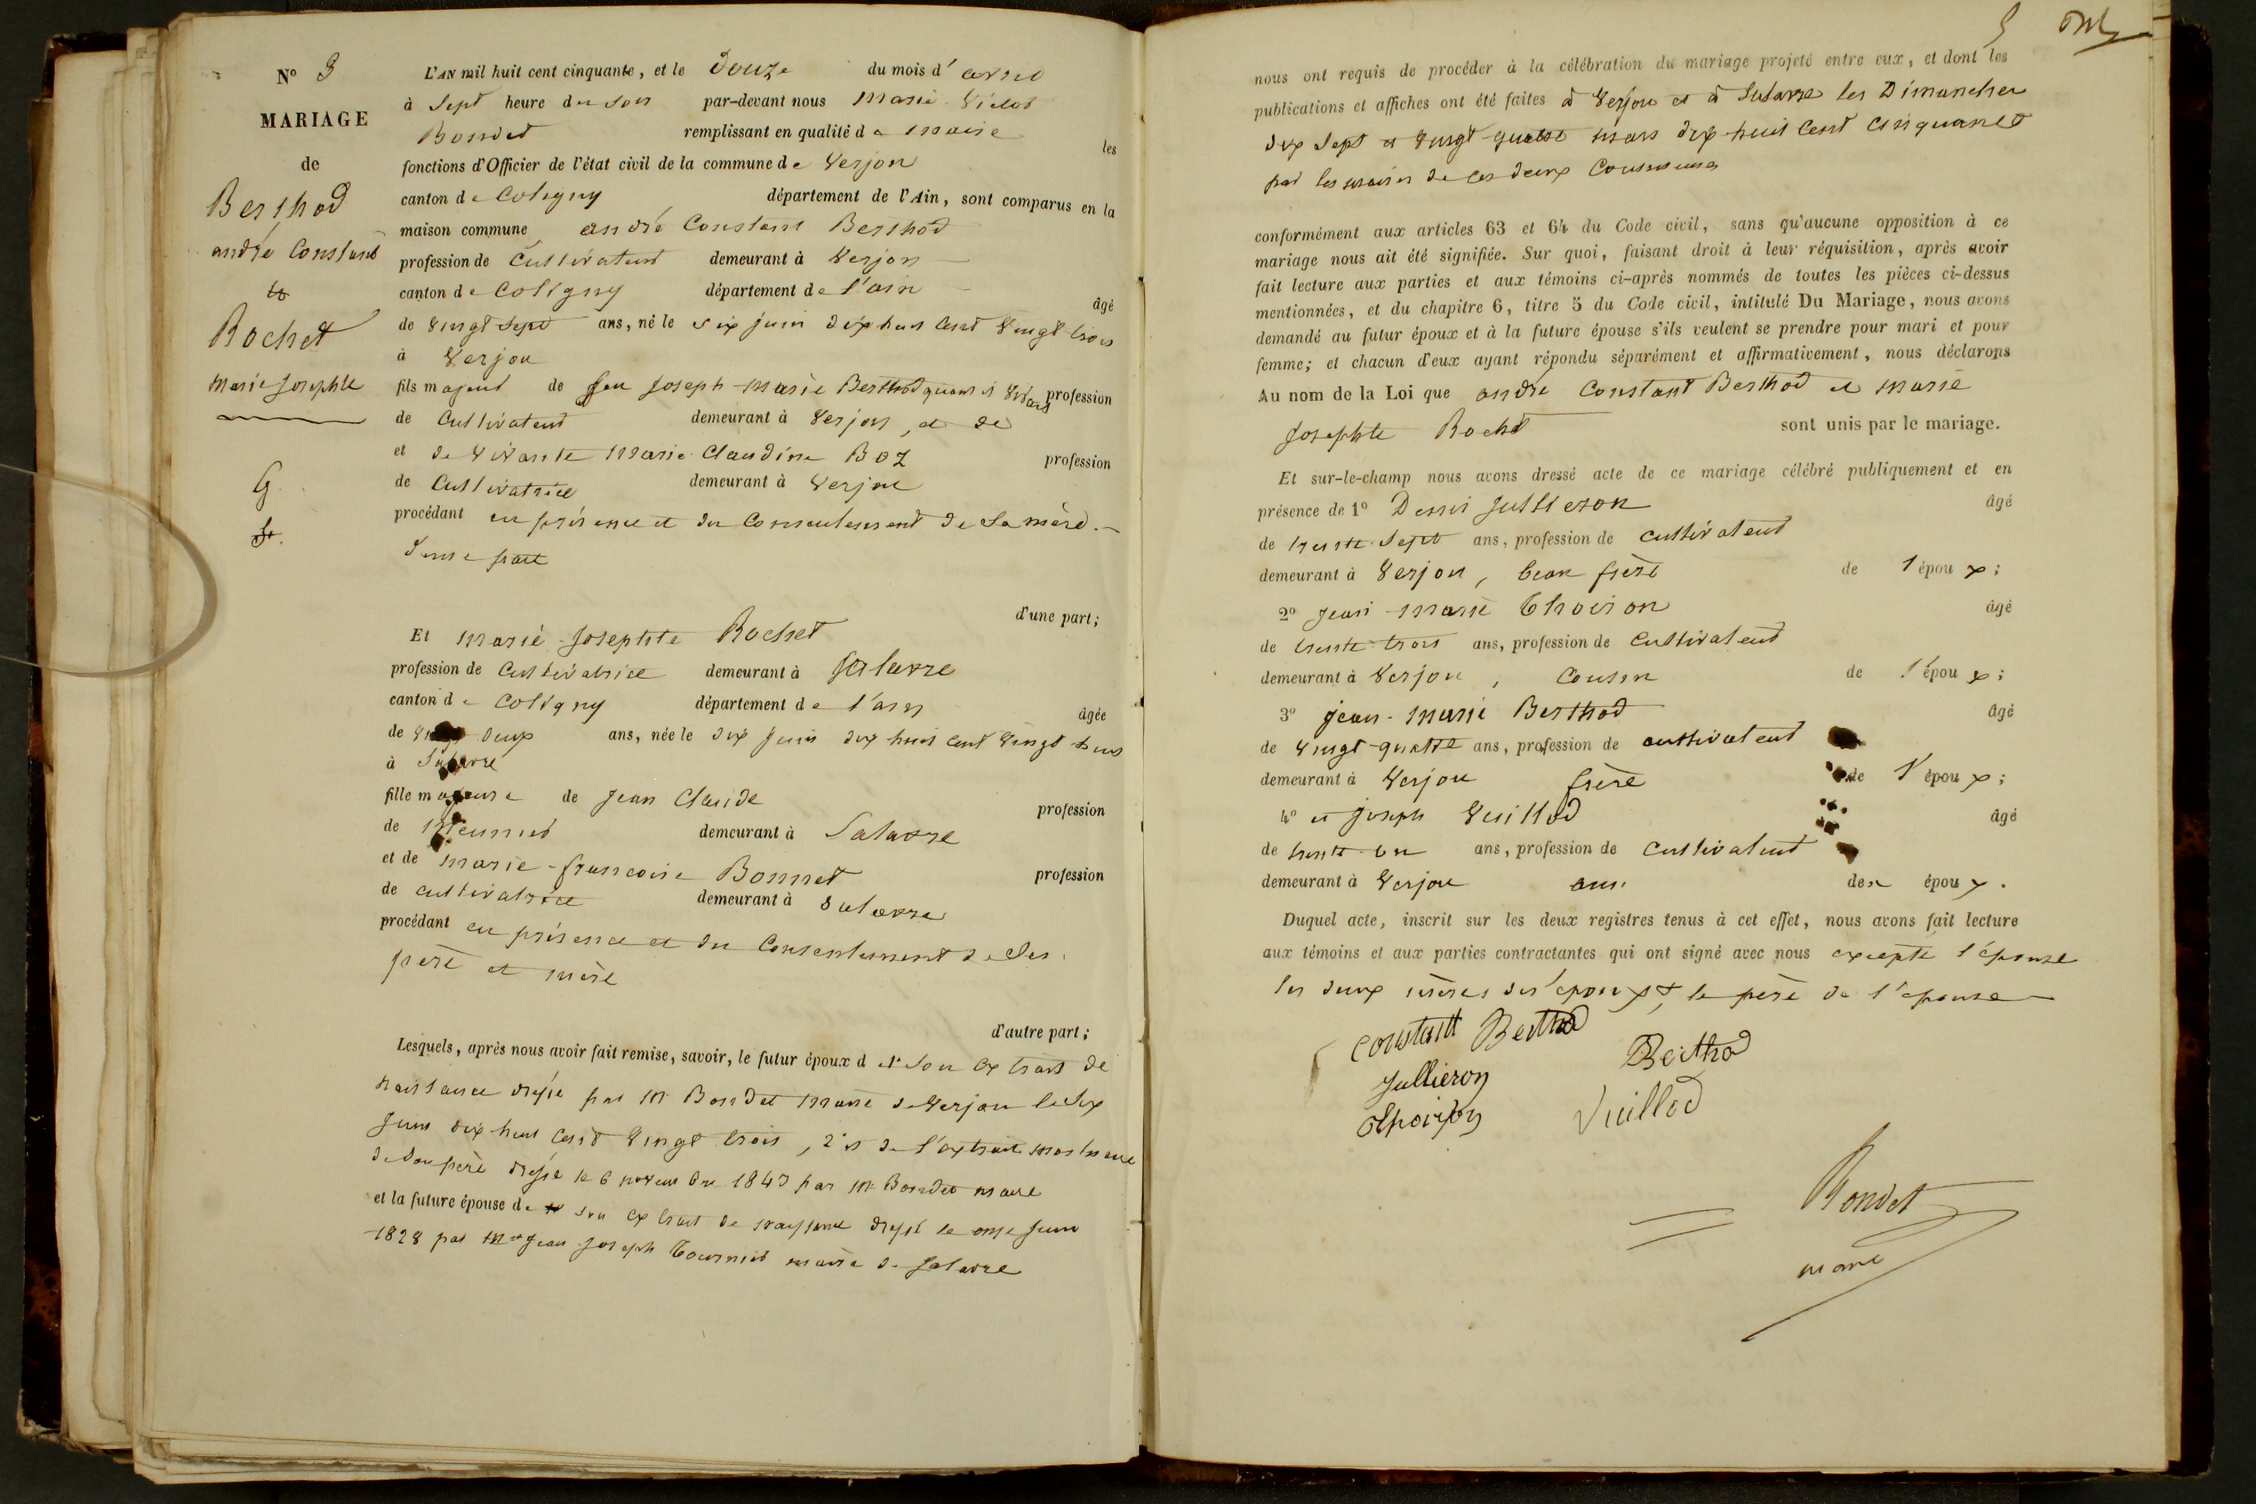 N° 3
MARIAGE
de
Berthod
andré Constant
&
Rochet
marie Josephte
G.
L'AN mil huit cent cinquante, et le douze du mois d'avril
à sept heure du soir par-devant nous marie Victor
Bondet remplissant en qualité de maire les
fonctions d'Officier de l'état civil de la commune de Verjon
canton de Coligny département de l'Ain, sont comparus en la
maison commune, andré Constant Berthod
profession de Cultivateur demeurant à Verjon
canton de Coligny département de l'ain âgé
de vingt sept ans, né le six juin dix huit cent vingt trois
à Verjon
fils majeur de feu Joseph-marie Berthod quand il vivait profession
de Cultivateur demeurant à Verjon, et de
et de vivante marie Claudine Boz profession
de Cultivatrice demeurant à Verjon
procédant en présence et du Consentement de sa mère
d'une part
d'une part;
Et marie Josephte Rochet
profession de Cultivatrice demeurant à Salavre
canton de Coligny département de l'ain âgée
de deux ans, née le dix juin dix huit cent vingt huit
à Salavre
fille majeure de Jean Claude profession
de Meunier demeurant à Salavre
et de marie-francoise Bonnet profession
de cultivatrice demeurant à Salavre
procédant en présence et du Consentement de ses
père et mère
d'autre part;
Lesquels, après nous avoir fait remise, savoir, le futur époux d 1° son extrait de
naissance dressé par Mr Bondet maire de Verjon le six
juin dix huit cent vingt trois, 2° de l'extrait mortuaire
de son père dressé le 6 novembre 1847 par Mr Bondet maire
et la future épouse de son extrait de naissance dressé le onze juin
1828 par Mr Jean Joseph Tournier maire de Salavre
nous ont requis de procéder à la célébration du mariage projeté entre eux, et dont les
publications et affiches ont été faites à Verjon et à Salavre les Dimanches
dix sept et vingt-quatre mars dix huit cent cinquante
par les maires de ces deux Communes
conformément aux articles 63 et 64 du Code civil, sans qu'aucune opposition à ce
mariage nous ait été signifiée. Sur quoi, faisant droit à leur réquisition, après avoir
fait lecture aux parties et aux témoins ci-après nommés de toutes les pièces ci-dessus
mentionnées, et du chapitre 6, titre 5 du Code civil, intitulé Du Mariage, nous avons
demandé au futur époux et à la future épouse s'ils veulent se prendre pour mari et pour
femme; et chacun d'eux ayant répondu séparément et affirmativement, nous déclarons
Au nom de la Loi que andré Constant Berthod et marie
Josephte Rochet sont unis par le mariage.
Et sur-le-champ nous avons dressé acte de ce mariage célébré publiquement et en
présence de 1° Denis Jullieron âgé
de trente sept ans, profession de cultivateur
demeurant à Verjon, beau frère de l'époux;
2° Jean-marie Thoiron âgé
de trente-trois ans, profession de cultivateur
demeurant à Verjon, Cousin de l'époux;
3° Jean-marie Berthod âgé
de vingt-quatre ans, profession de cultivateur
demeurant à Verjon frère de l'époux;
4° et Joseph Vuillod âgé
de trente-un ans, profession de cultivateur
demeurant à Verjon ami des époux.
Duquel acte, inscrit sur les deux registres tenus à cet effet, nous avons fait lecture
aux témoins et aux parties contractantes qui ont signé avec nous excepté l'épouse
les deux mères des époux & le père de l'épouse
Constant Berthod
Berthod
Jullieron
Vuillod
Thoiron
Bondet
maire